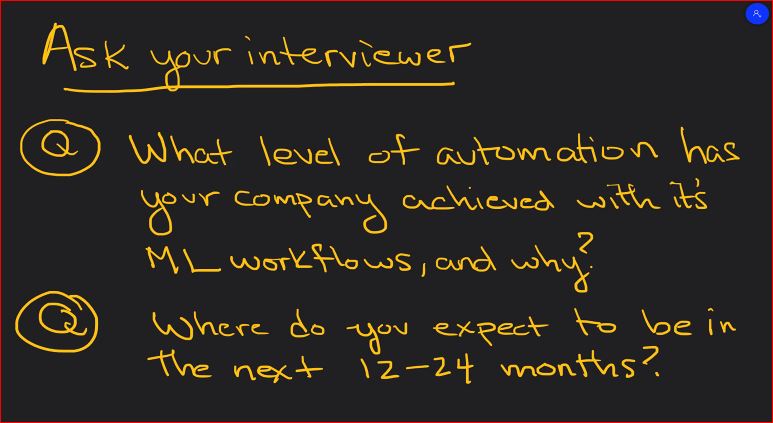 Ask your interviewer
Q What level of automation has
your company achieved with it's
ML workflows, and why?
Q Where do you expect to be in
the next 12-24 months?